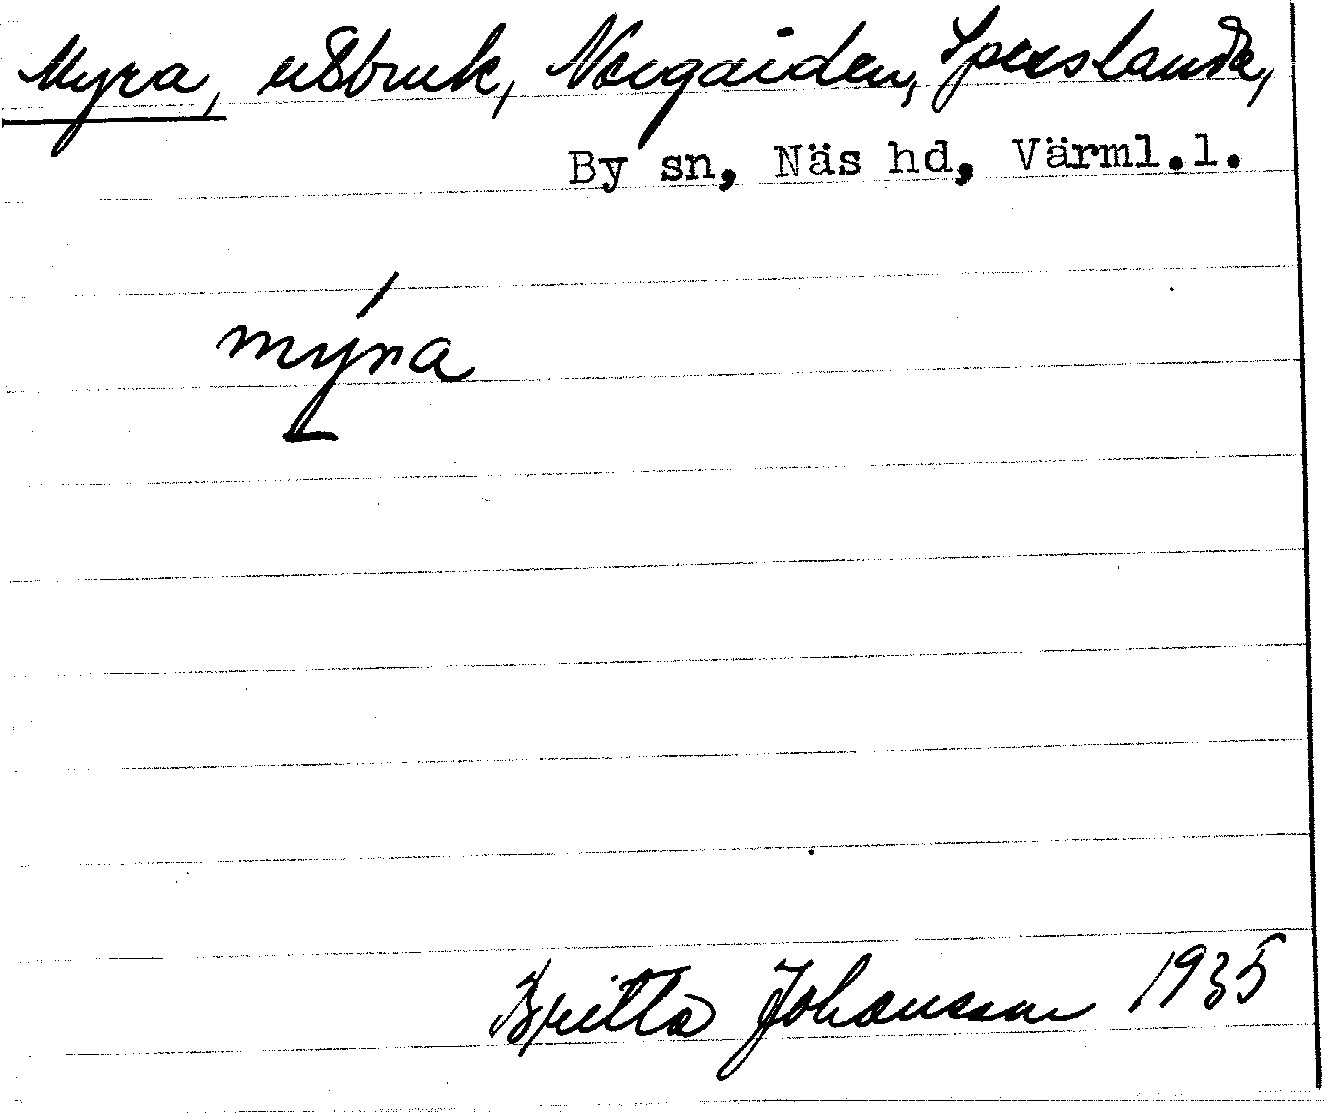 Myra, utbruk, Norgården, Sperslanda,
By sn, Näs hd, Värml.l.
mý̱ra
Britta Johansson 1935